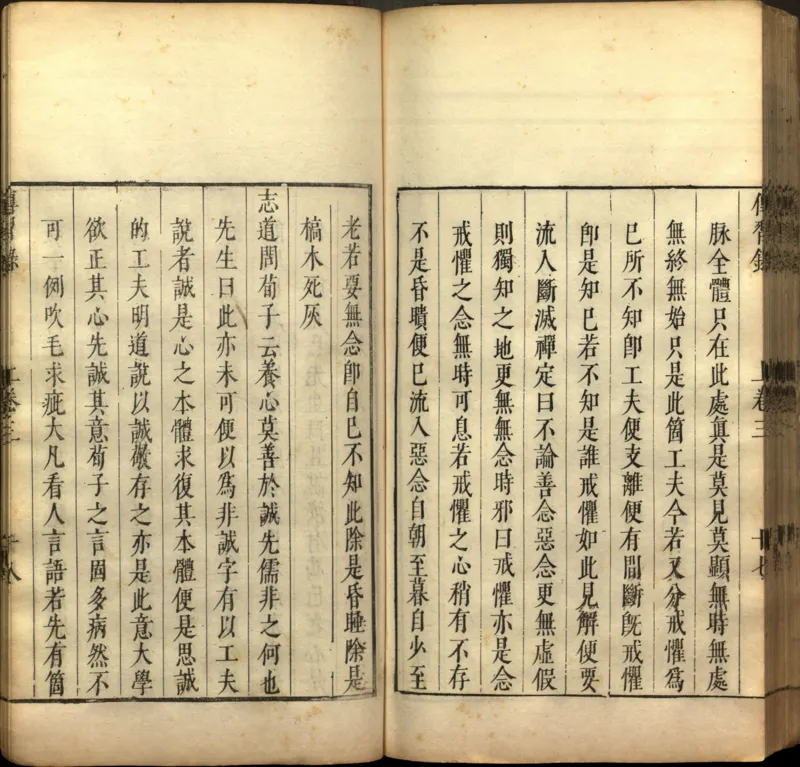 脉全體只在此處眞是莫見莫顯無時無處
無終無始只是此箇工夫今若又分戒懼爲
己所不知卽工夫便支離便有間斷旣戒懼
卽是知己若不知是誰戒懼如此見解便要
流入斷滅禪定曰不論善念惡念更無虛假
則獨知之地更無無念時邪曰戒懼亦是念
戒懼之念無時可息若戒懼之心稍有不存
不是昏聵便已流入惡念自朝至暮自少至
老若要無念卽自己不知此除是昏睡除是
槁木死灰
志道問荀子云養心莫善於誠先儒非之何也
先生曰此亦未可便以爲非誠字有以工夫
說者誠是心之本體求復其本體便是思誠
的工夫明道說以誠敬存之亦是此意大學
欲正其心先誠其意荀子之言固多病然不
可一例吹毛求疵大凡看人言語若先有箇